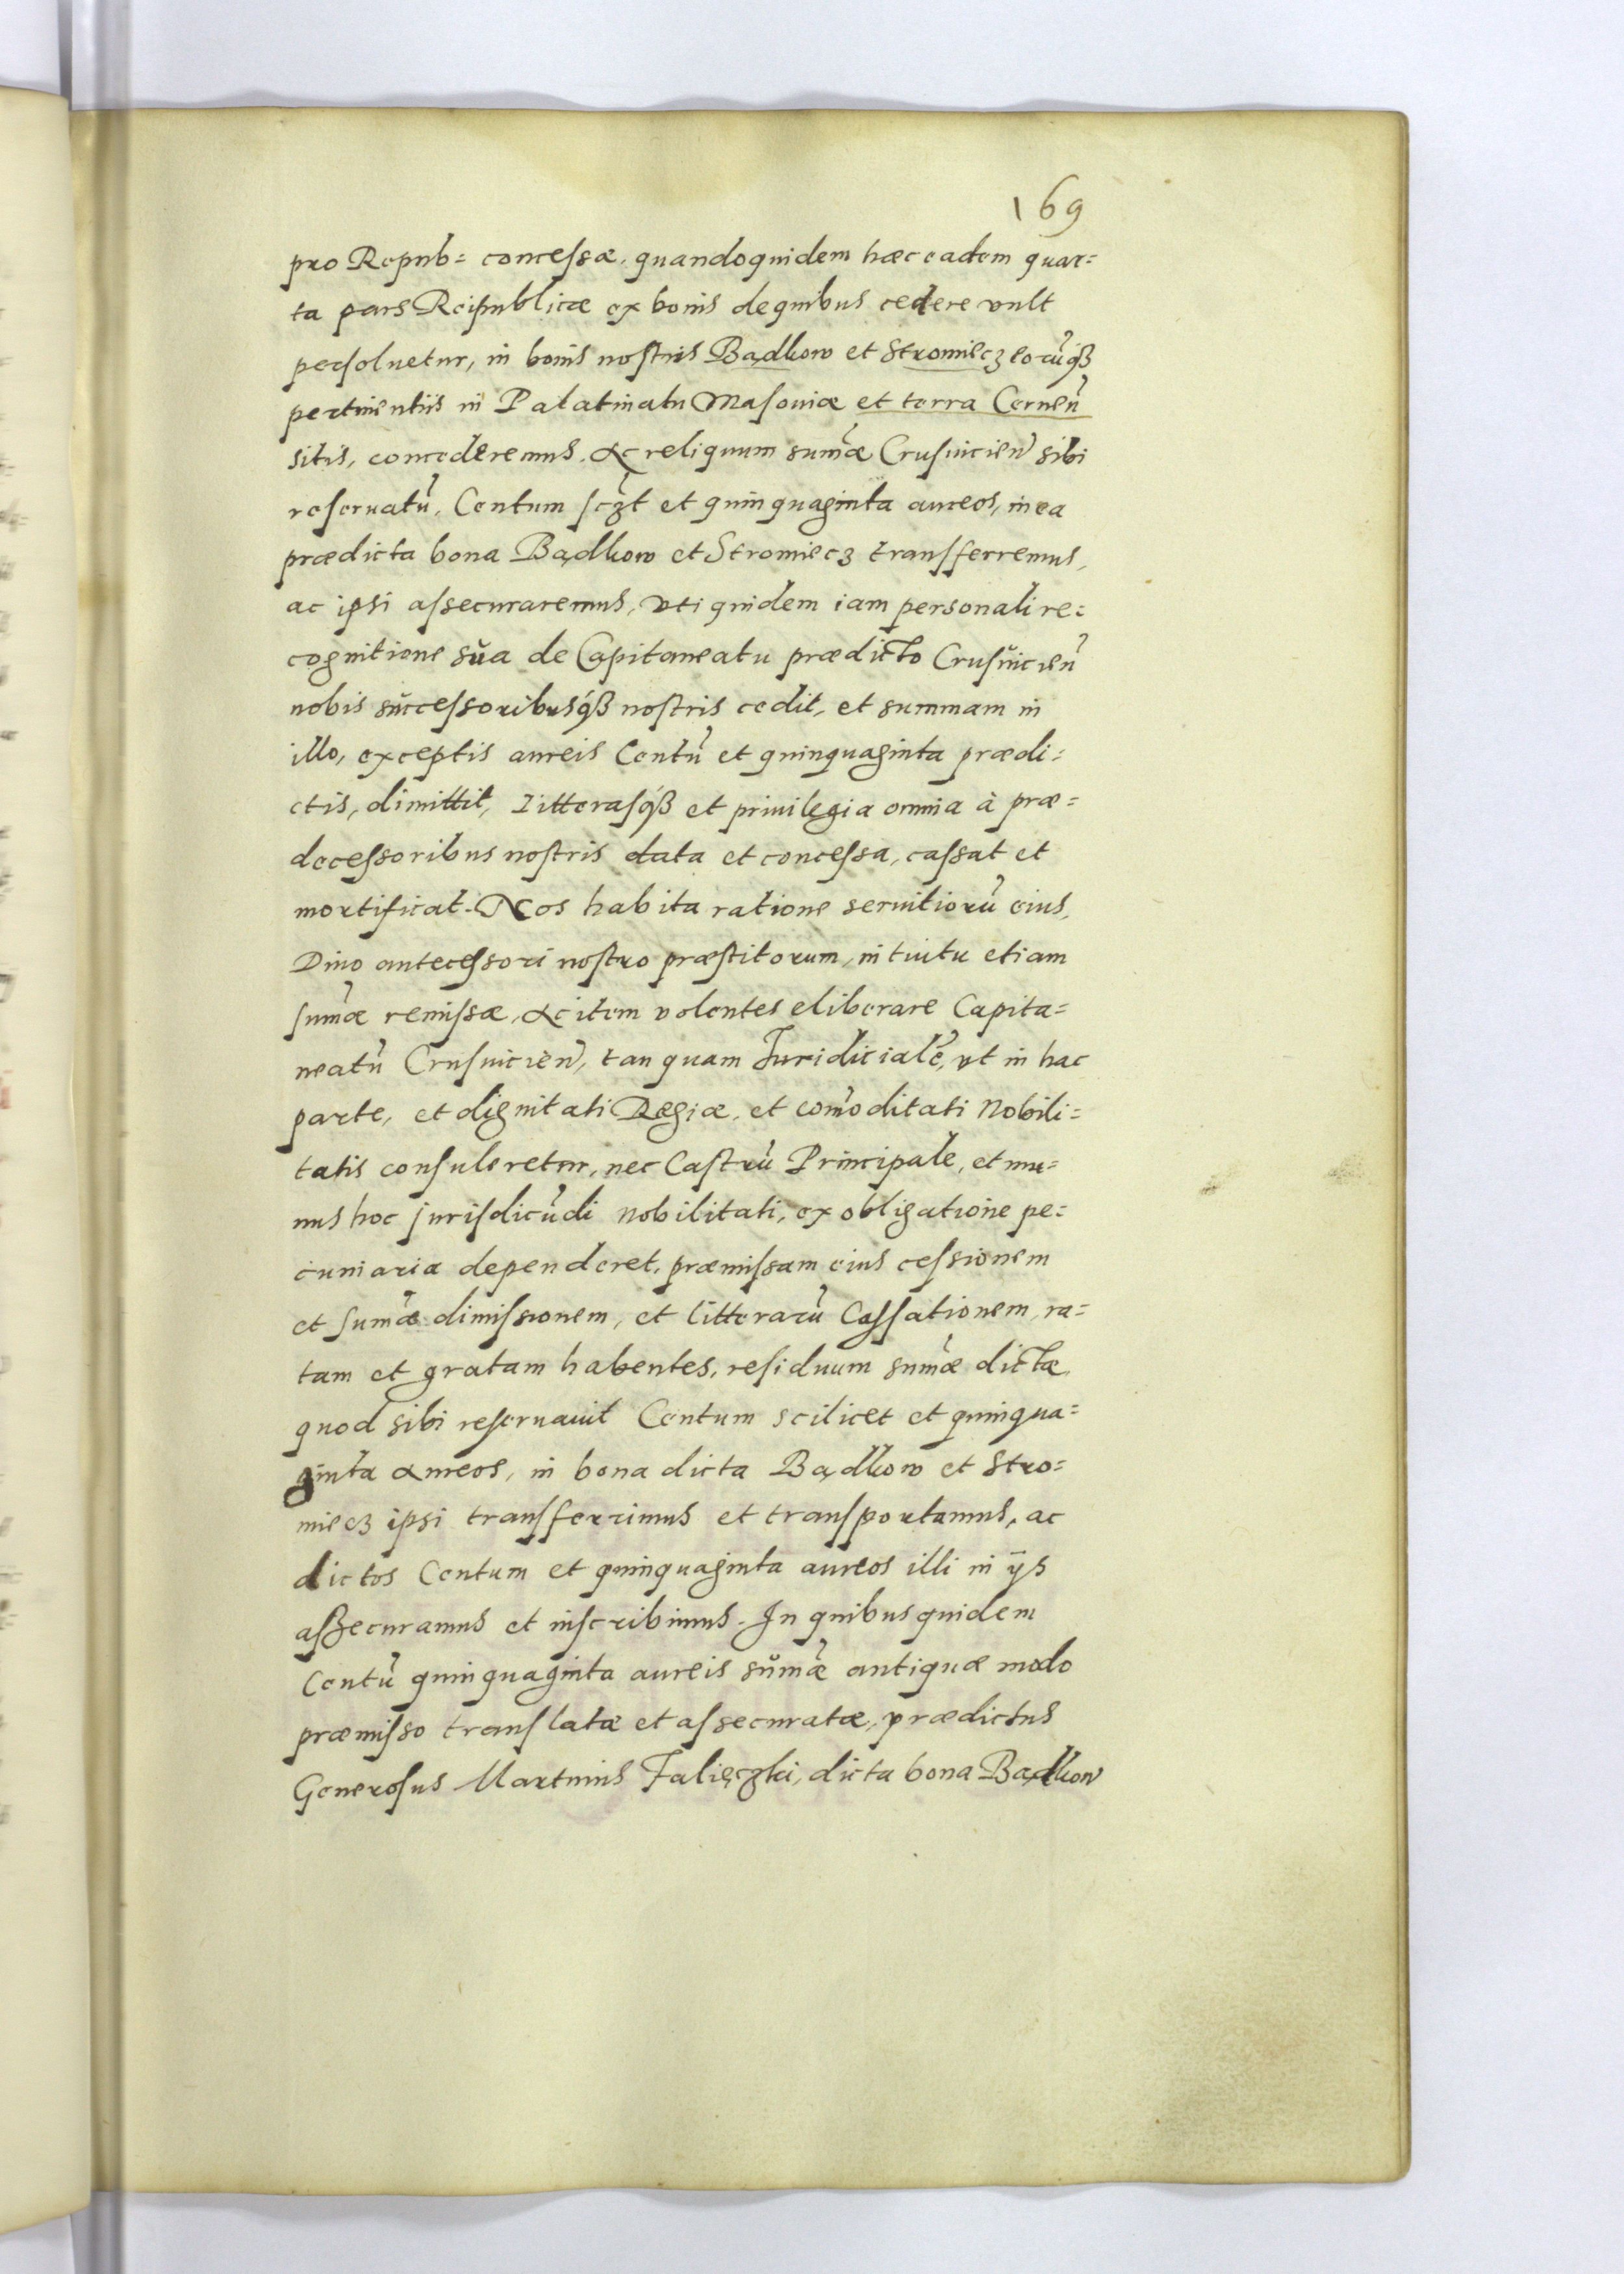 169
pro Repub= concessæ, quandoquidem hæc eadem quar=
ta pars Reipublicæ ex bonis de quibus cedere vult
persoluetur, in bonis nostris Bądkow et Stromiecz eorũqß
pertinentiis in Palatinatu Masoviæ et terra Cernen̄
sitis, concederemus, & reliquum sum̄æ Crusuicien̄ sibi
reseruatũ, Centum sczt et quinquaginta aureos, in ea
prædicta bona Bądkow et Stromiecz transferremus,
ac ipsi assecuraremus, vti quidem iam personali re=
cognitione sŭa de Capitaneatu prædicto Crusŭicien̄
nobis sŭccessoribusqß nostris cedit, et summam in
illo, exceptis aureis Centũ et quinquaginta prædi=
ctis, dimittit, litterasqß et privilegia omnia à præ=
decessoribus nostris data et concessa, cassat et
mortificat. Nos habita ratione seruitiorũ eius,
Diuo antecessori nostro præstitorum, intuitu etiam
sum̄æ remissæ, & item volentes eliberare Capita=
neatũ Crusuicien̄, tanquam Iuridicialẽ, vt in hac
parte, et dignitati Regiæ, et com̄oditati Nobili=
tatis consuleretur, nec Castrũ Principale, et mu=
nus hoc jurisdicũdi nobilitati, ex obligatione pe=
cuniaria dependeret, præmissam eius cessionem
et sum̄æ dimissionem, et litterarũ Cassationem, ra=
tam et gratam habentes, residuum sum̄æ dictæ,
quod sibi reseruauit Centum scilicet et quinqua=
ginta aureos, in bona dicta Bądkow et Stro=
miecz ipsi transferrimus et transportamus, ac
dictos Centum et quinquaginta aureos illi in ijs
aßecuramus et inscribimus. In quibus quidem
Centũ quinquaginta aureis sŭm̄æ antiquæ modo
præmisso translatæ et assecuratæ, prædictus
Generosus Martinus Falięczki, dicta bona Bądkow